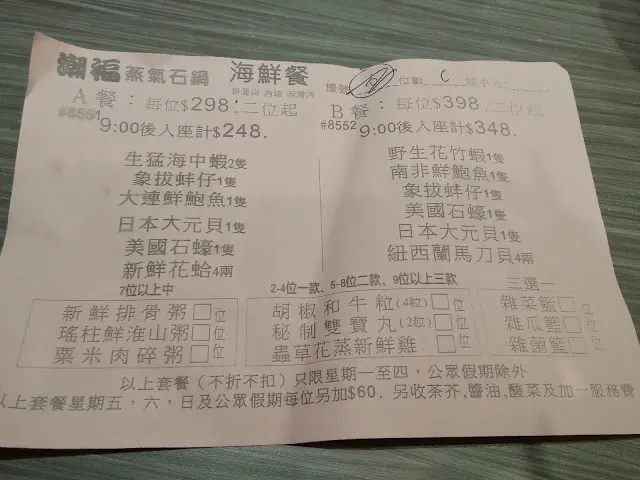 潮福蒸氣石鍋 海鮮餐
新蒲崗 西環 西灣河
位數 C
A餐：每位$298.二位起
#8551
9:00後入座計$248.
生猛海中蝦2隻
象拔蚌仔1隻
大連鮮鮑魚1隻
日本大元貝1隻
美國石蠔1隻
新鮮花蛤4兩
B餐：每位$398.二位起
#8552
9:00後入座計$348.
野生花竹蝦1隻
南非鮮鮑魚1隻
象拔蚌仔1隻
美國石蠔1隻
日本大元貝1隻
紐西蘭馬刀貝4兩
7位以上中
新鮮排骨粥□位
瑤柱鮮淮山粥□位
粟米肉碎粥□位
2-4位一款、5-8位二款、9位以上三款
胡椒和牛粒(4粒)□位
秘制雙寶丸(2粒)□位
蟲草花蒸新鮮雞□位
三選一
雜菜籃□位
雜瓜籃□位
雜菌籃□位
以上套餐（不折不扣）只限星期一至四，公眾假期除外
以上套餐星期五，六，日及公眾假期每位另加$60．另收茶芥,醬油,酸菜及加一服務費